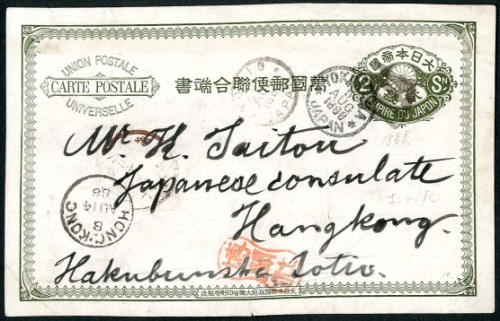 UNION POSTALE
CARTE POSTALE
UNIVERSELLE
書端合聯便郵國萬
大日本帝國
2 Sn
EMPIRE DU JAPON
AUG
1888
JAPAN
1888
Mr. H. Saitou
Japanese consulate
Hangkong.
HONG-KONG
B
AU 14
88
Hakubunsha Sotio.